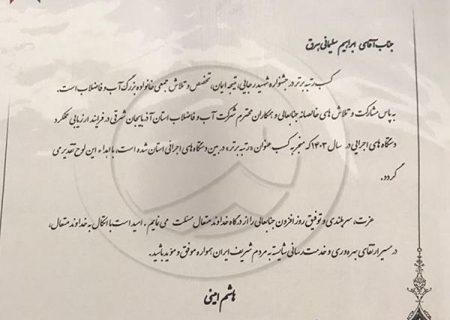 جناب آقای ابراهیم سلیمانی بیرق
کسب رتبه برتر در جشنواره شهید رجایی، نتیجه ایمان، تخصص و تلاش جمعی خانواده بزرگ آب و فاضلاب است.
به پاس مشارکت و تلاش های خالصانه جنابعالی و همکاران محترم شرکت آب و فاضلاب استان آذربایجان شرقی در فرایند ارزیابی عملکرد
دستگاه های اجرایی در سال ۱۴۰۳ که منجر به کسب عنوان «رتبه برتر» در بین دستگاه های اجرائی استان شده است، با اهداء این لوح تقدیر می
گردد.
عزت، سربلندی و توفیق روز افزون جنابعالی را از درگاه خداوند متعال مسئلت می نمایم . امید است با اتکال به خداوند متعال،
در مسیر ارتقای بهره وری و خدمت رسانی شایسته به مردم شریف ایران همواره موفق و مؤید باشید.
هاشم امینی